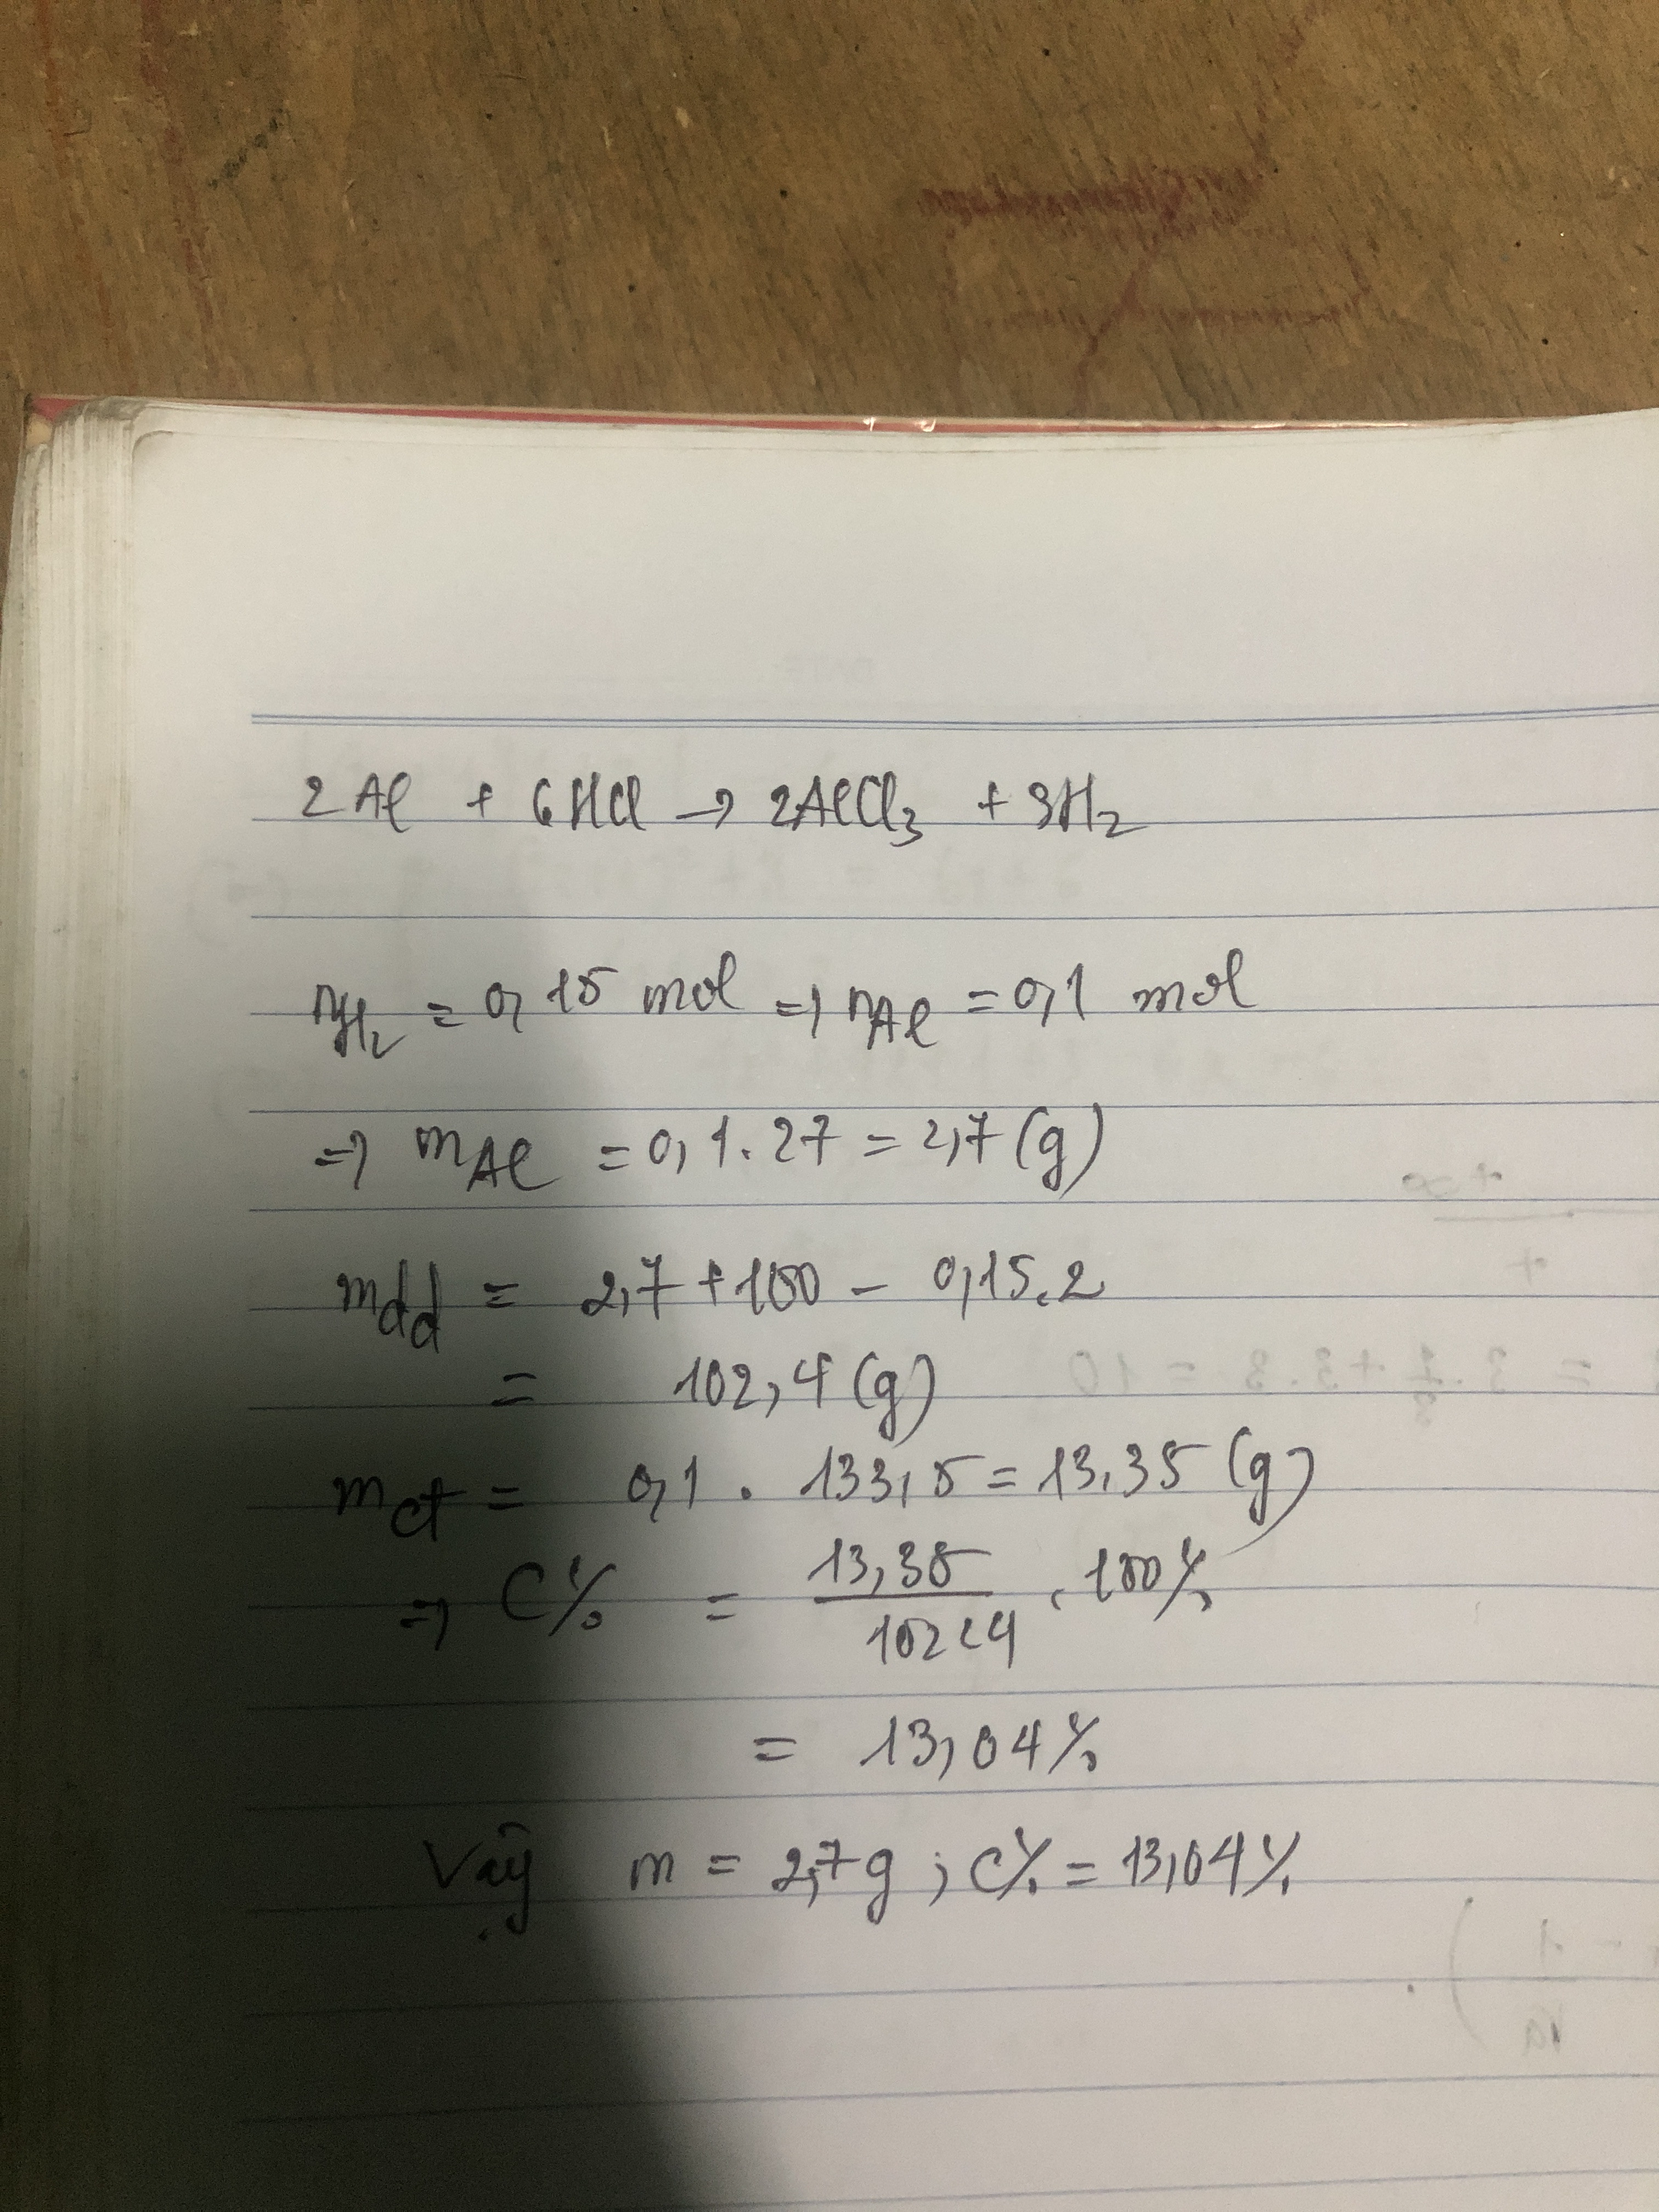 2Al + 6HCl → 2AlCl₃ + 3H₂
nH₂ = 0,15 mol => nAl = 0,1 mol
=> mAl = 0,1.27 = 2,7 (g)
mdd = 2,7 + 100 - 0,15.2
= 102,4 (g)
mct = 0,1 . 133,5 = 13,35 (g)
=> C% = 13,35 / 102,4 . 100%
= 13,04%
Vậy m = 2,7g ; C% = 13,04%